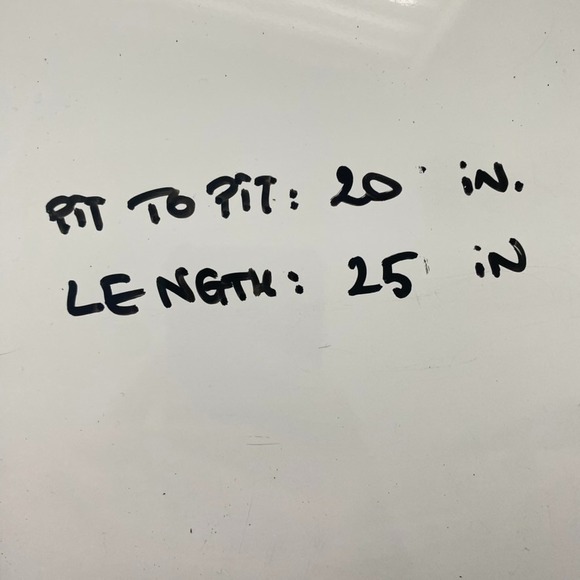 PIT TO PIT: 20 iN.
LENGTH: 25 iN